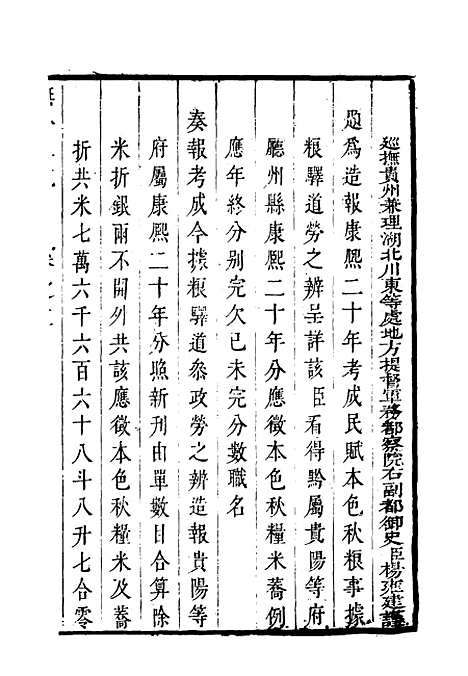 巡撫貴州兼理湖北川東等處地方提督軍務都察院右副都御史臣楊雍建謹
題爲造報康熙二十年考成民賦本色秋粮事據
粮驛道勞之辨呈詳該臣看得黔屬貴陽等府
廳州縣康熙二十年分應徵本色秋糧米蕎例
應年終分别完欠已未完分數職名
奏報考成今據粮驛道叅政勞之辨造報貴陽等
府屬康熙二十年分照新刊由單數目合算除
米折銀兩不開列共該應徵本色秋糧米及蕎
折共米七萬六千六百六十八斗八升七合零